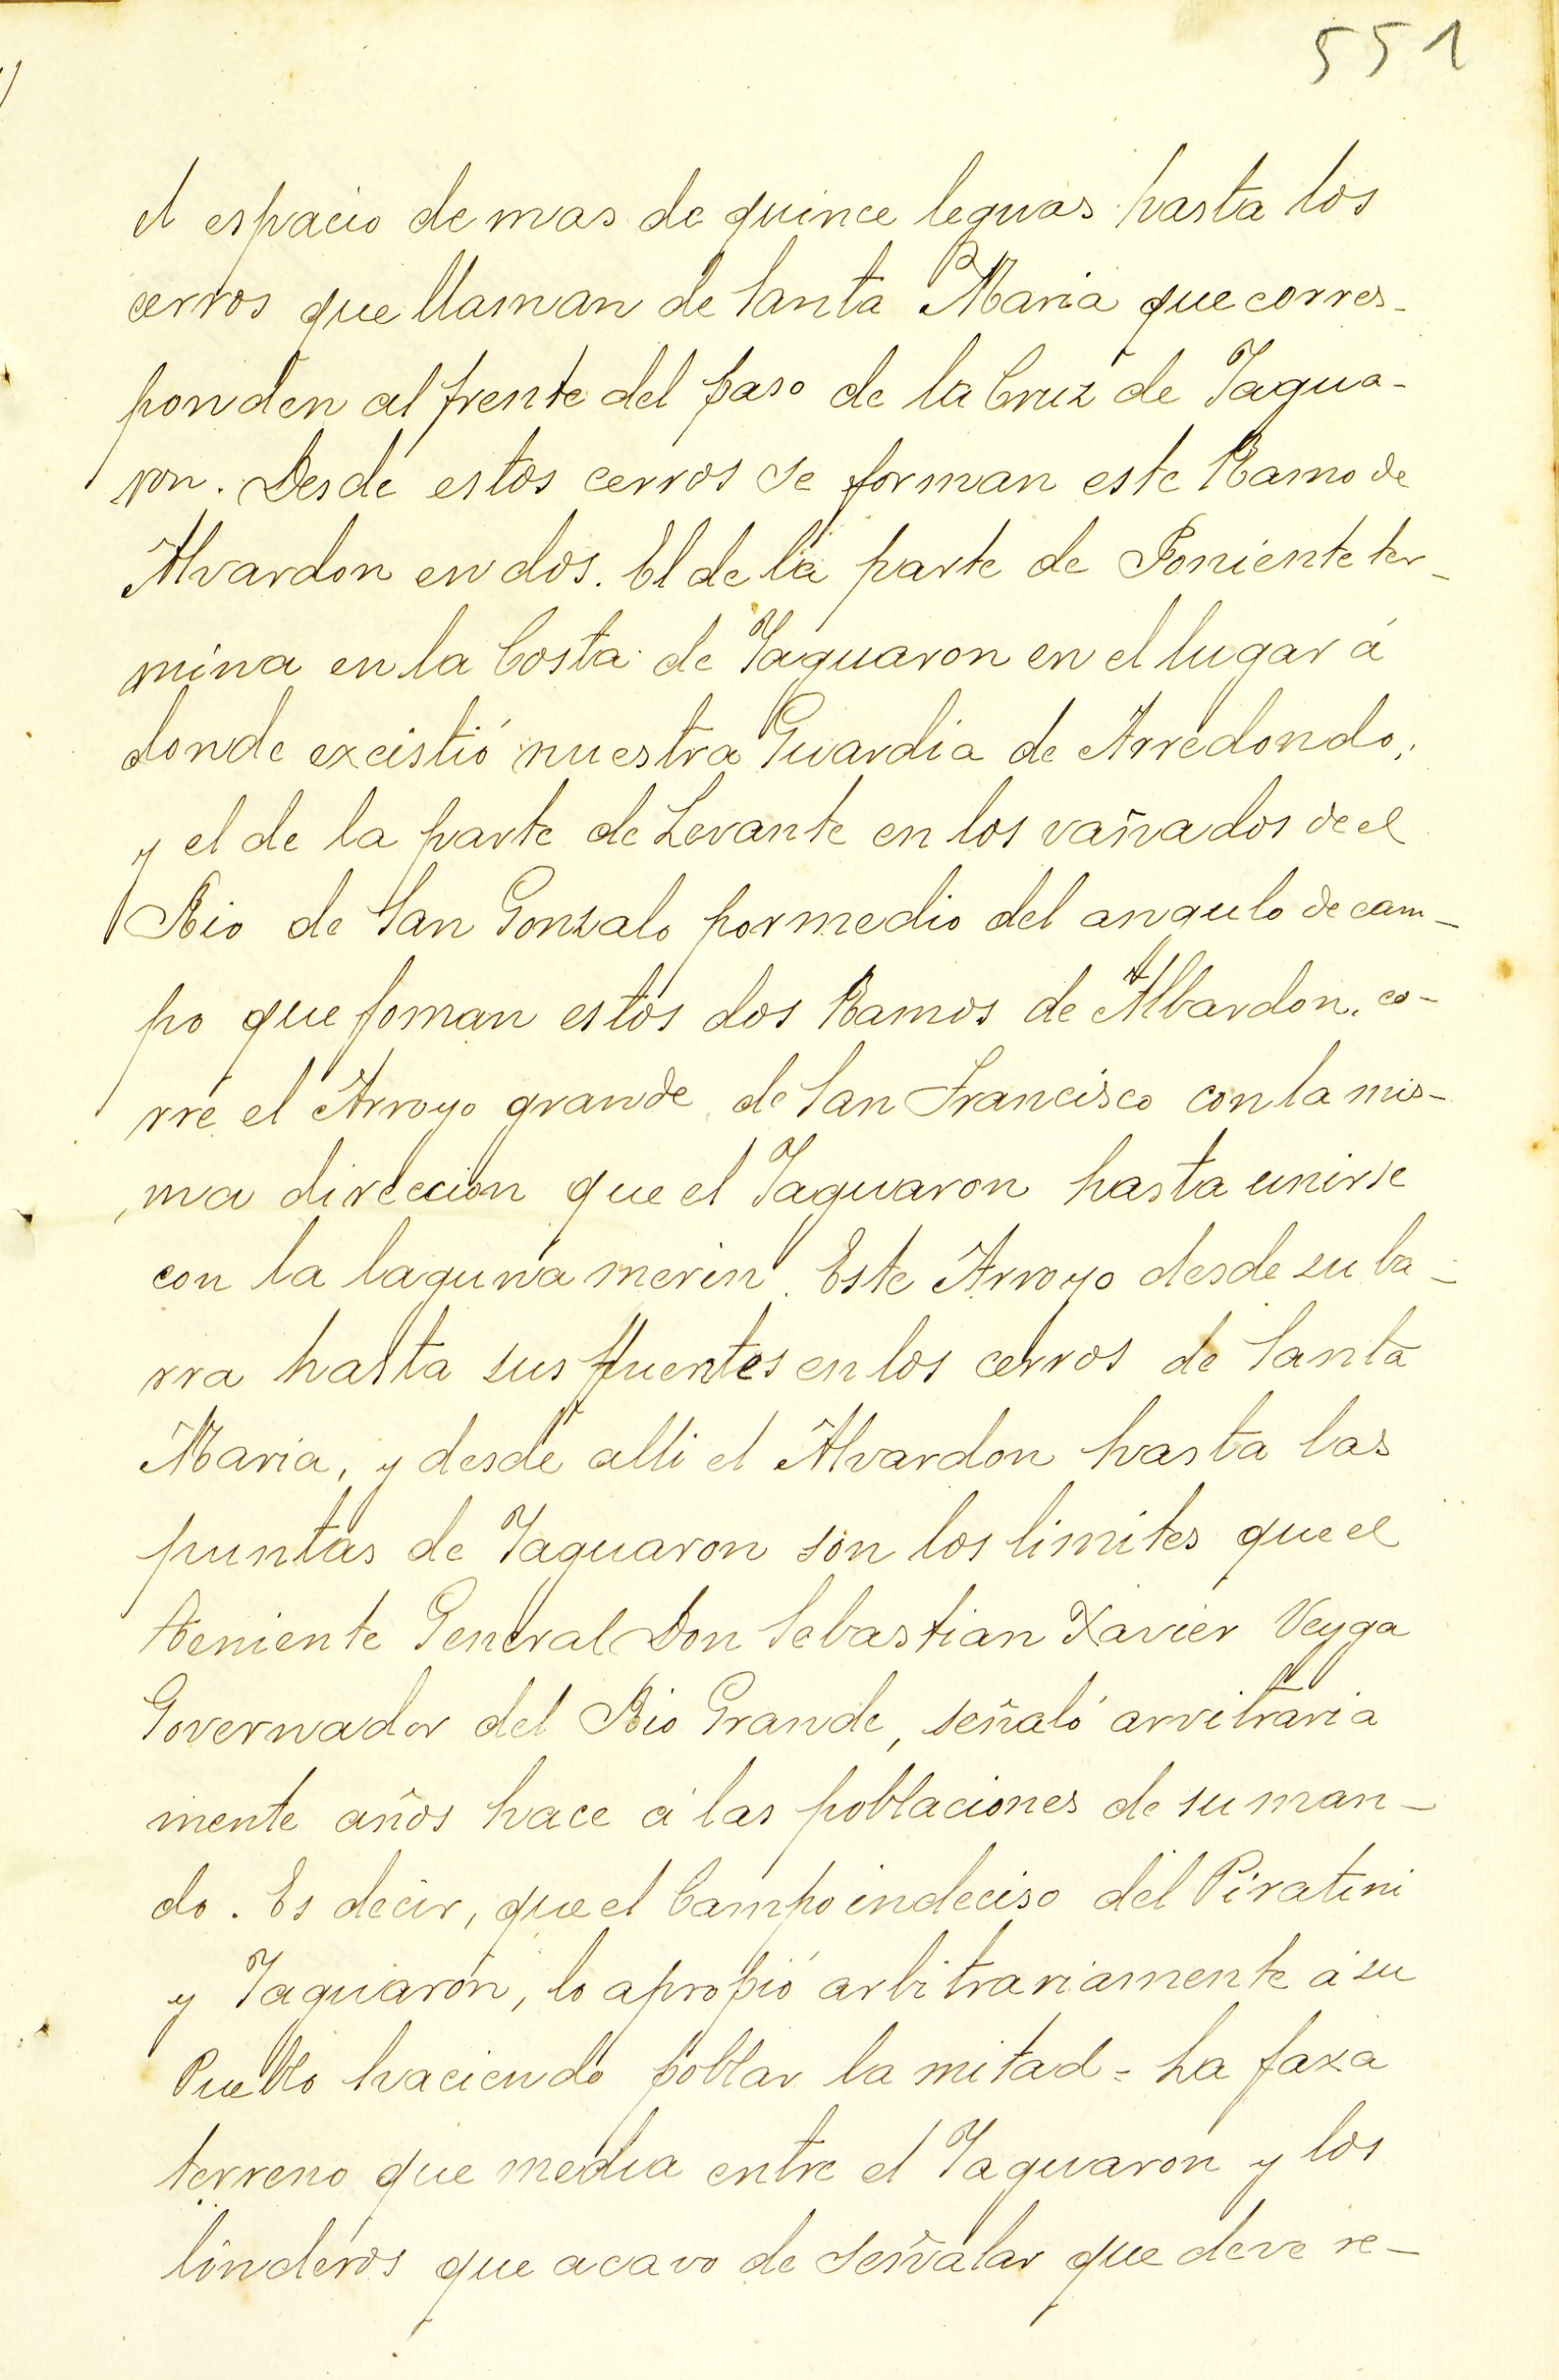 551
el espacio de mas de quince leguas hasta los
cerros que llaman de Santa Maria que corres-
ponden al frente del paso de la Cruz de Yagua-
ron. Desde estos cerros se forman este Ramo de
Alvardon en dos. El de la parte de Poniente ter-
mina en la Costa de Yaguaron en el lugar á
donde excistió nuestra Guardia de Arredondo,
y el de la parte de Levante en los vañados de el
Rio de San Gonzalo por medio del angulo de cam-
po que foman estos dos Ramos de Albardon, co-
rre el Arroyo grande de San Francisco con la mis-
ma direccion que el Yaguaron hasta unirse
con la laguna merin. Este Arroyo desde su ba-
rra hasta sus fuentes en los cerros de Santa
Maria, y desde alli el Alvardon hasta las
puntas de Yaguaron son los limites que el
teniente General Don Sebastian Xavier Veyga
Governador del Rio Grande, señaló arvitraria
mente años hace á las poblaciones de su man-
do. Es decir, que el Campo indeciso del Piratini
y Yaguarón, lo apropió arbitrariamente á su
Pueblo haciendo poblar la mitad = La faxa
terreno que media entre el Yaguaron y los
linderos que acavo de señalar que deve re-